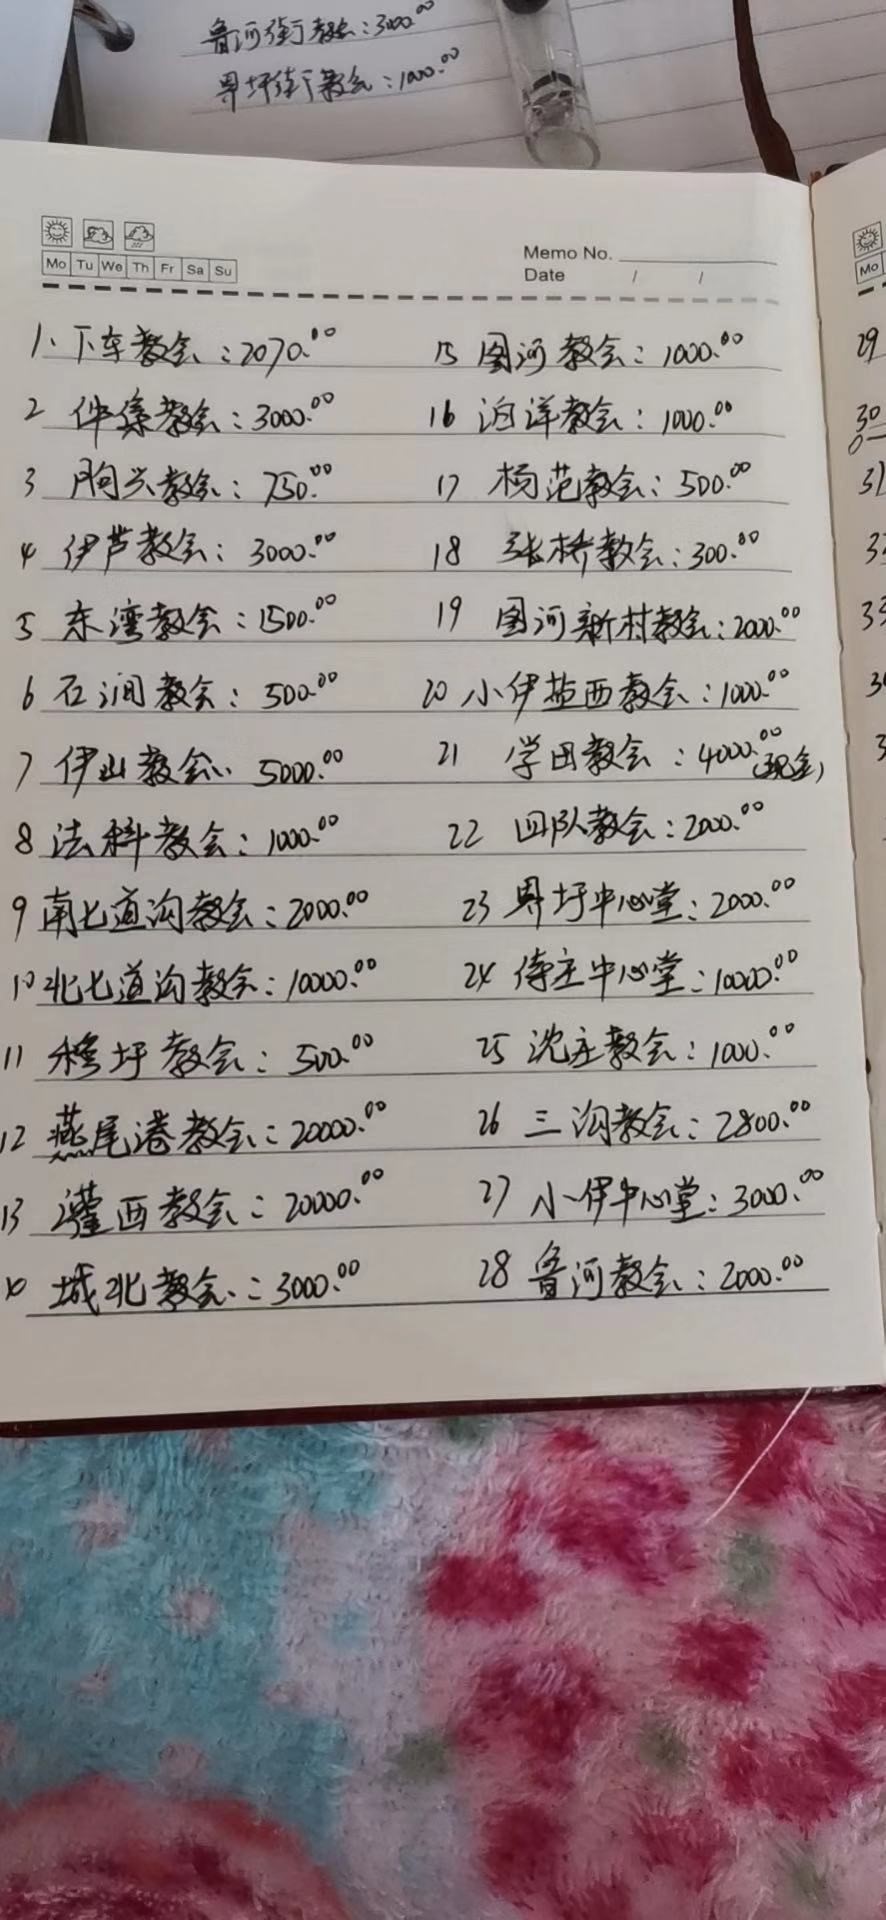 鲁河街教会:3000.00
界圩街教会:1000.00
Mo Tu We Th Fr Sa Su
Memo No.
Date / /
Mo
1、下车教会:2070.00
2 仲集教会:3000.00
3 朐兴教会:750.00
4 伊芦教会:3000.00
5 东湾教会:1500.00
6 石涧教会:500.00
7 伊山教会: 5000.00
8 法科教会:1000.00
9 南七道沟教会:2000.00
10 北七道沟教会:10000.00
11 穆圩教会:500.00
12 燕尾港教会:20000.00
13 灌西教会:20000.00
14 城北教会:3000.00
15 图河教会:1000.00
16 海洋教会:1000.00
17 杨范教会:500.00
18 张桥教会:300.00
19 图河新村教会:2000.00
20 小伊盐西教会:1000.00
21 学田教会:4000.00(现金)
22 四队教会:2000.00
23 界圩中心堂:2000.00
24 侍庄中心堂:10000.00
25 沈庄教会:1000.00
26 三沟教会:2800.00
27 小伊中心堂:3000.00
28 鲁河教会:2000.00
29
30
31